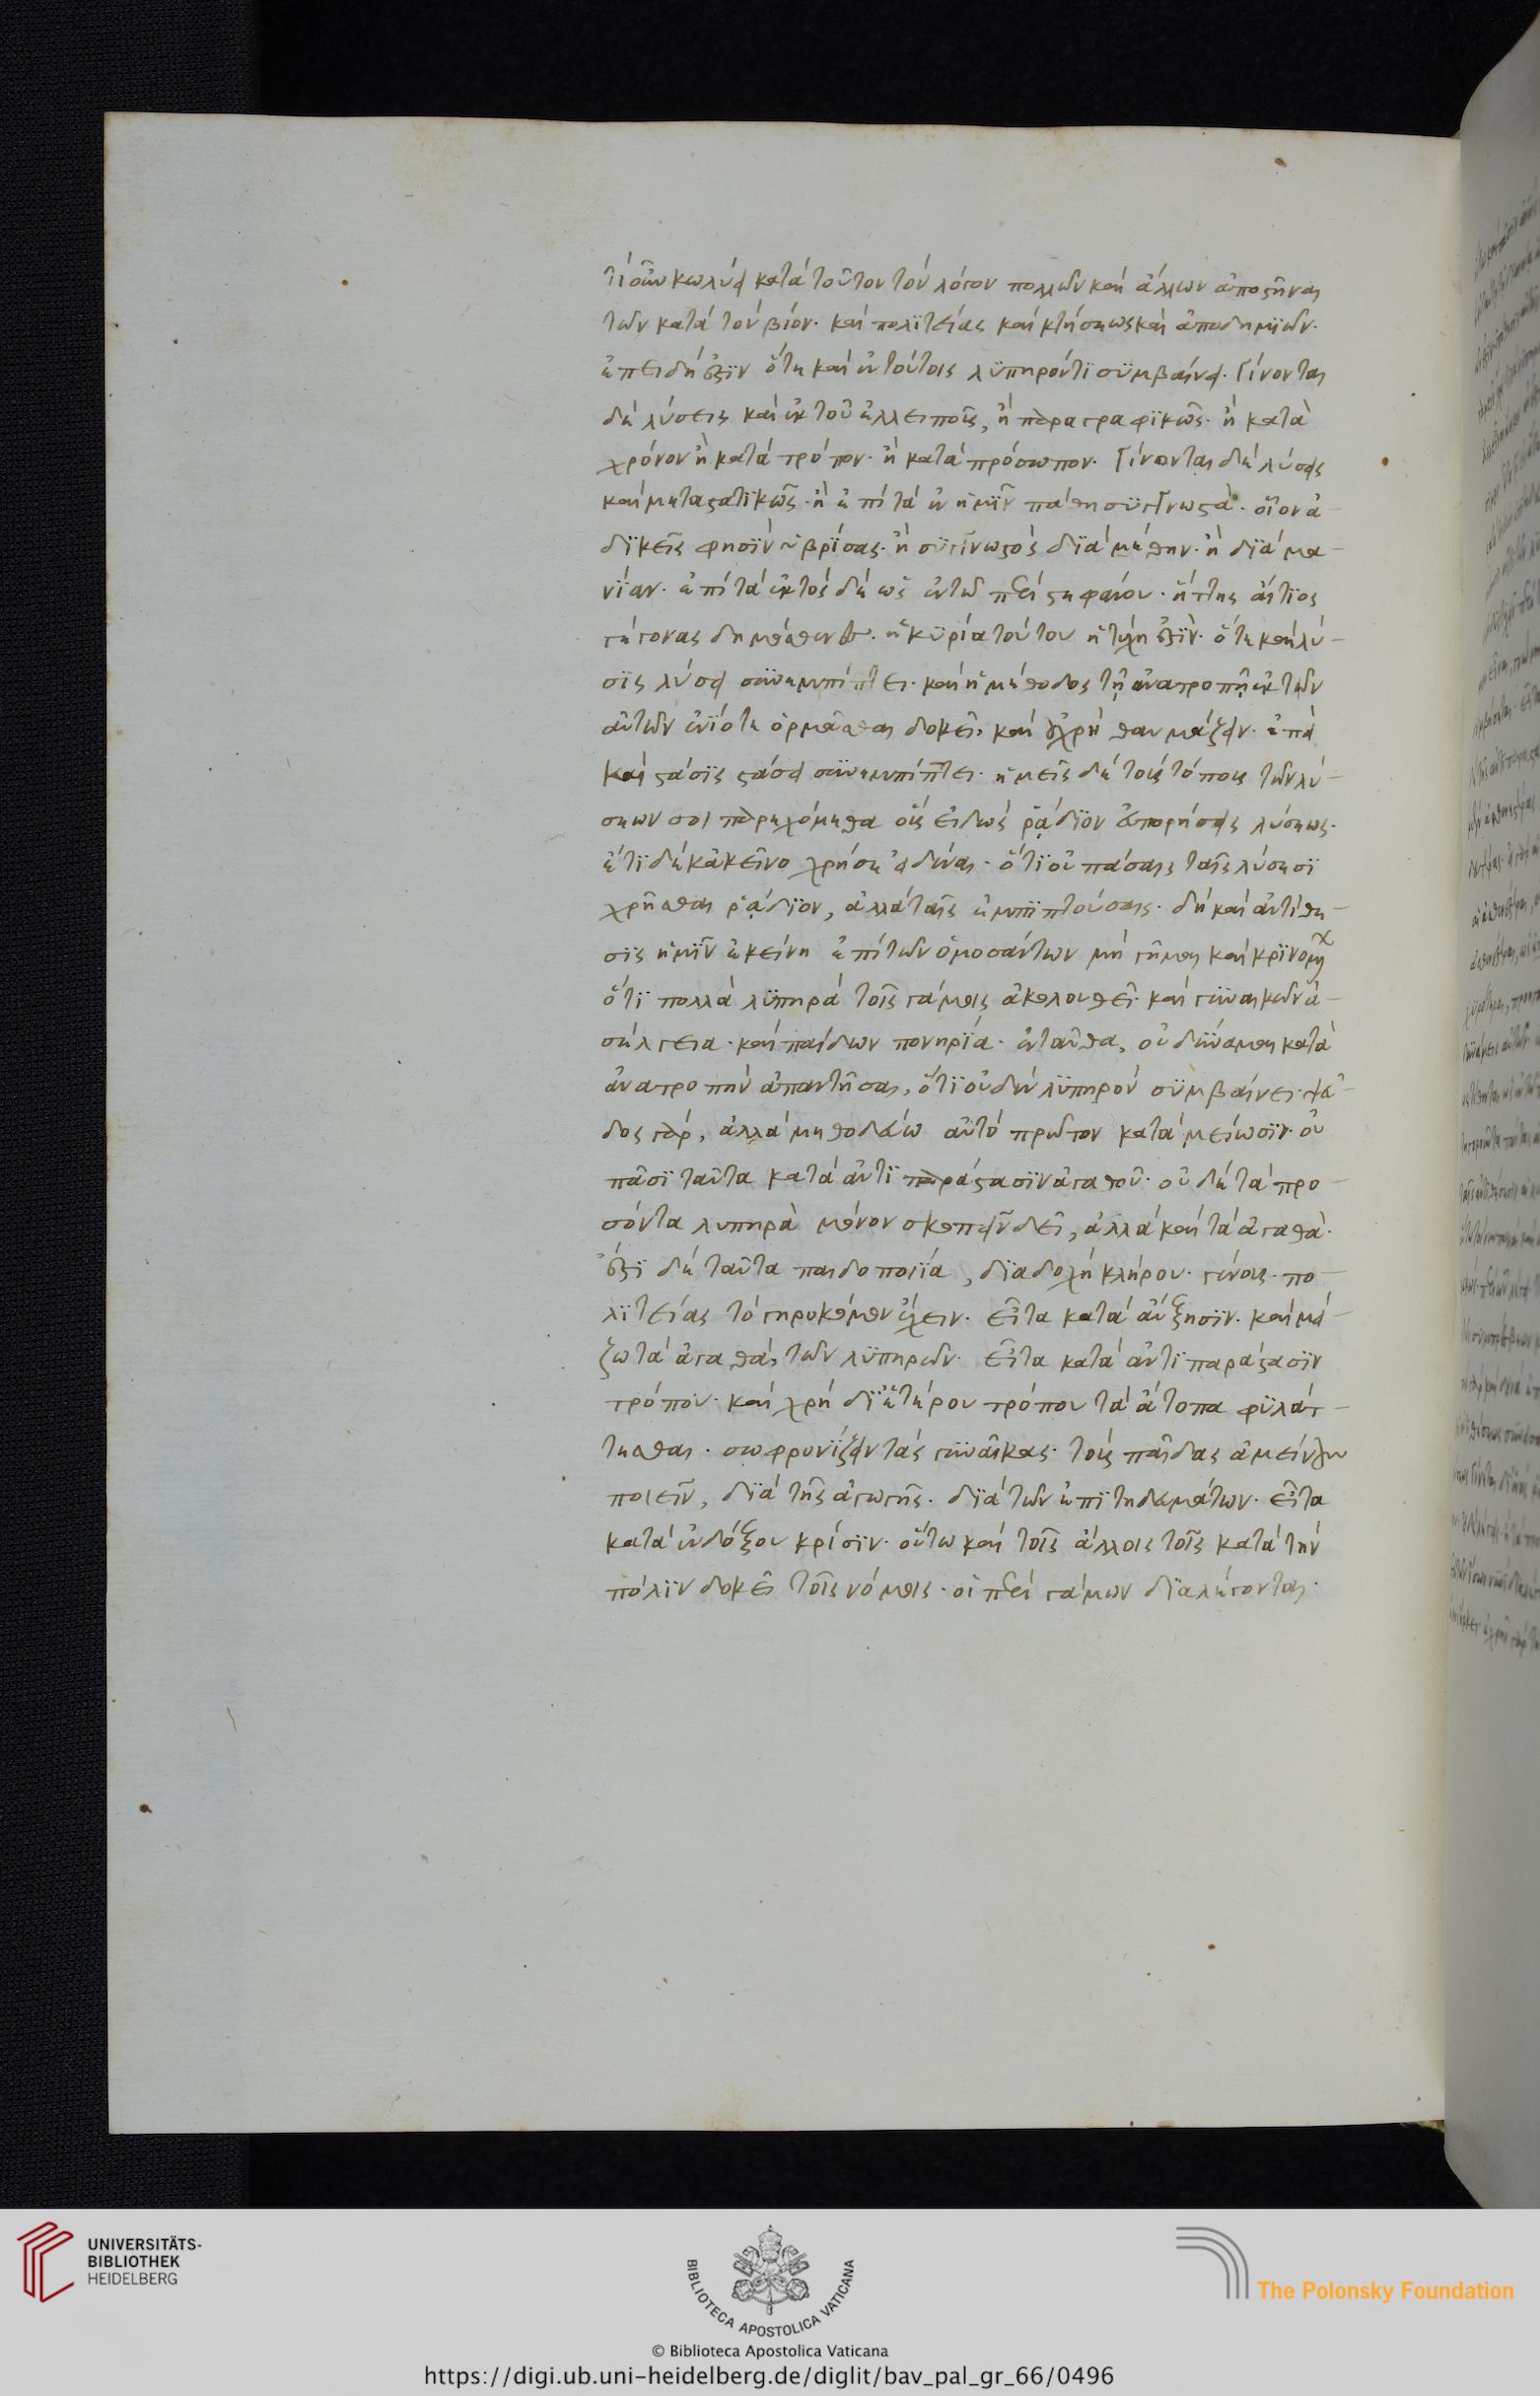 τί οὖν κωλύει κατὰ τοῦτον τὸν λόγον πολλῶν καὶ ἄλλων ἀποστῆναι
τῶν κατὰ τὸν βίον· καὶ πολϊτείας καὶ κτήσεως καὶ ἀποδημϊῶν·
ἐπειδή ἐστϊν ὅτε καὶ ἐν τούτοις λϋπηρόν τϊ σϋμβαίνει· Γίνονται
δὲ λύσεις καὶ ἐκ τοῦ ἐλλειποῦς, ἢ παραγραφϊκῶς· ἢ κατὰ
χρόνον ἢ κατὰ τρόπον· ἢ κατὰ πρόσωπον· Γίνονται δὲ λύσεις
καὶ μεταστατϊκῶς· ἢ ἐπὶ τὰ ἐν ἡμῖν πάθη σϋγγνωστὰ· οἷον ἀ-
δϊκεῖς φησϊν ὑβρίσας· ἢ σϋγγνωστὸς δϊὰ μέθην· ἢ δϊὰ μα-
νίαν· ἐπὶ τὰ ἐκτὸς δὲ ὡς ἐν τῶ περὶ στεφάνου·
γέγονας
σϊς λύσει σϋνεμπίπτει· καὶ ἡ μέθοδος τῇ ἀνατροπῇ ἐκ τῶν
αὐτῶν ἐνίοτε ὁρμᾶσθαι δοκεῖ, καὶ οὐ χρὴ θαυμάζειν· ἐπεὶ
καὶ στάσϊς στάσει σϋνεμπίπτει· ἡμεῖς δὲ τοὺς τόπους τῶν λύ-
σεων σοι παρεχόμεθα οὓς εἰδὼς ῥᾴδϊον εὐπορήσεις λύσεως·
ἔτϊ δὲ κἀκεῖνο χρή σε εἰδέναι· ὅτϊ οὐ πάσαις ταῖς λύσεσϊ
χρῆσθαι ῥᾴδϊον, ἀλλὰ ταῖς ἐμπϊπτούσαις·
σϊς ἡμῖν ἐκείνη ἐπὶ τῶν ὀμοσάντων μὴ γῆμαι καὶ κρϊνομένων
ὅτϊ πολλὰ λϋπηρὰ τοῖς γάμοις ἀκολουθεῖ· καὶ γϋναικῶν ἀ-
σέλγεια· καὶ παίδων πονηρϊά· ἐνταῦθα, οὐ δϋνάμεθα κατὰ
ἀνατροπὴν ἀπαντῆσαι, ὅτϊ οὐδὲν λϋπηρὸν σϋμβαίνει· ψεῦ-
δος γάρ, ἀλλὰ μεθοδεύω αὐτὸ πρῶτον κατὰ μείωσϊν· οὐ
πᾶσϊ ταῦτα κατὰ ἀντϊπαράστασϊν ἀγαθοῦ· οὐ δὲ τὰ προ-
σόντα λυπηρὰ μόνον σκοπεῖν δεῖ, ἀλλὰ καὶ τὰ ἀγαθὰ·
ἔστϊ δὲ ταῦτα παιδοποιϊα, δϊαδοχὴ κλήρου· γένους· πο-
λϊτείας τὸ γηροκόμον ἔχειν· εἶτα κατὰ αὔξησϊν· καὶ μεί-
ζω τὰ ἀγαθά, τῶν λϋπηρῶν· εἶτα κατὰ ἀντϊπαράστασϊν
τρόπον· καὶ χρὴ δϊ' ἑτέρου τρόπου τὰ ἄτοπα φϋλάτ-
τεσθαι· σωφρονίζειν τὰς γϋναῖκας· τοὺς παῖδας ἀμείνους
ποιεῖν, δϊὰ τῆς ἀγωγῆς· δϊὰ τῶν ἐπϊτηδευμάτων· εἶτα
κατὰ ἐνδόξου κρίσϊν· οὕτω καὶ τοῖς ἄλλοις τοῖς κατὰ τὴν
πόλϊν δοκεῖ τοῖς νόμοις· οἳ περὶ γάμων δϊαλέγονται·
UNIVERSITÄTS-
BIBLIOTHEK
HEIDELBERG
BIBLIOTECA APOSTOLICA VATICANA
The Polonsky Foundation
© Biblioteca Apostolica Vaticana
https://digi.ub.uni-heidelberg.de/diglit/bav_pal_gr_66/0496